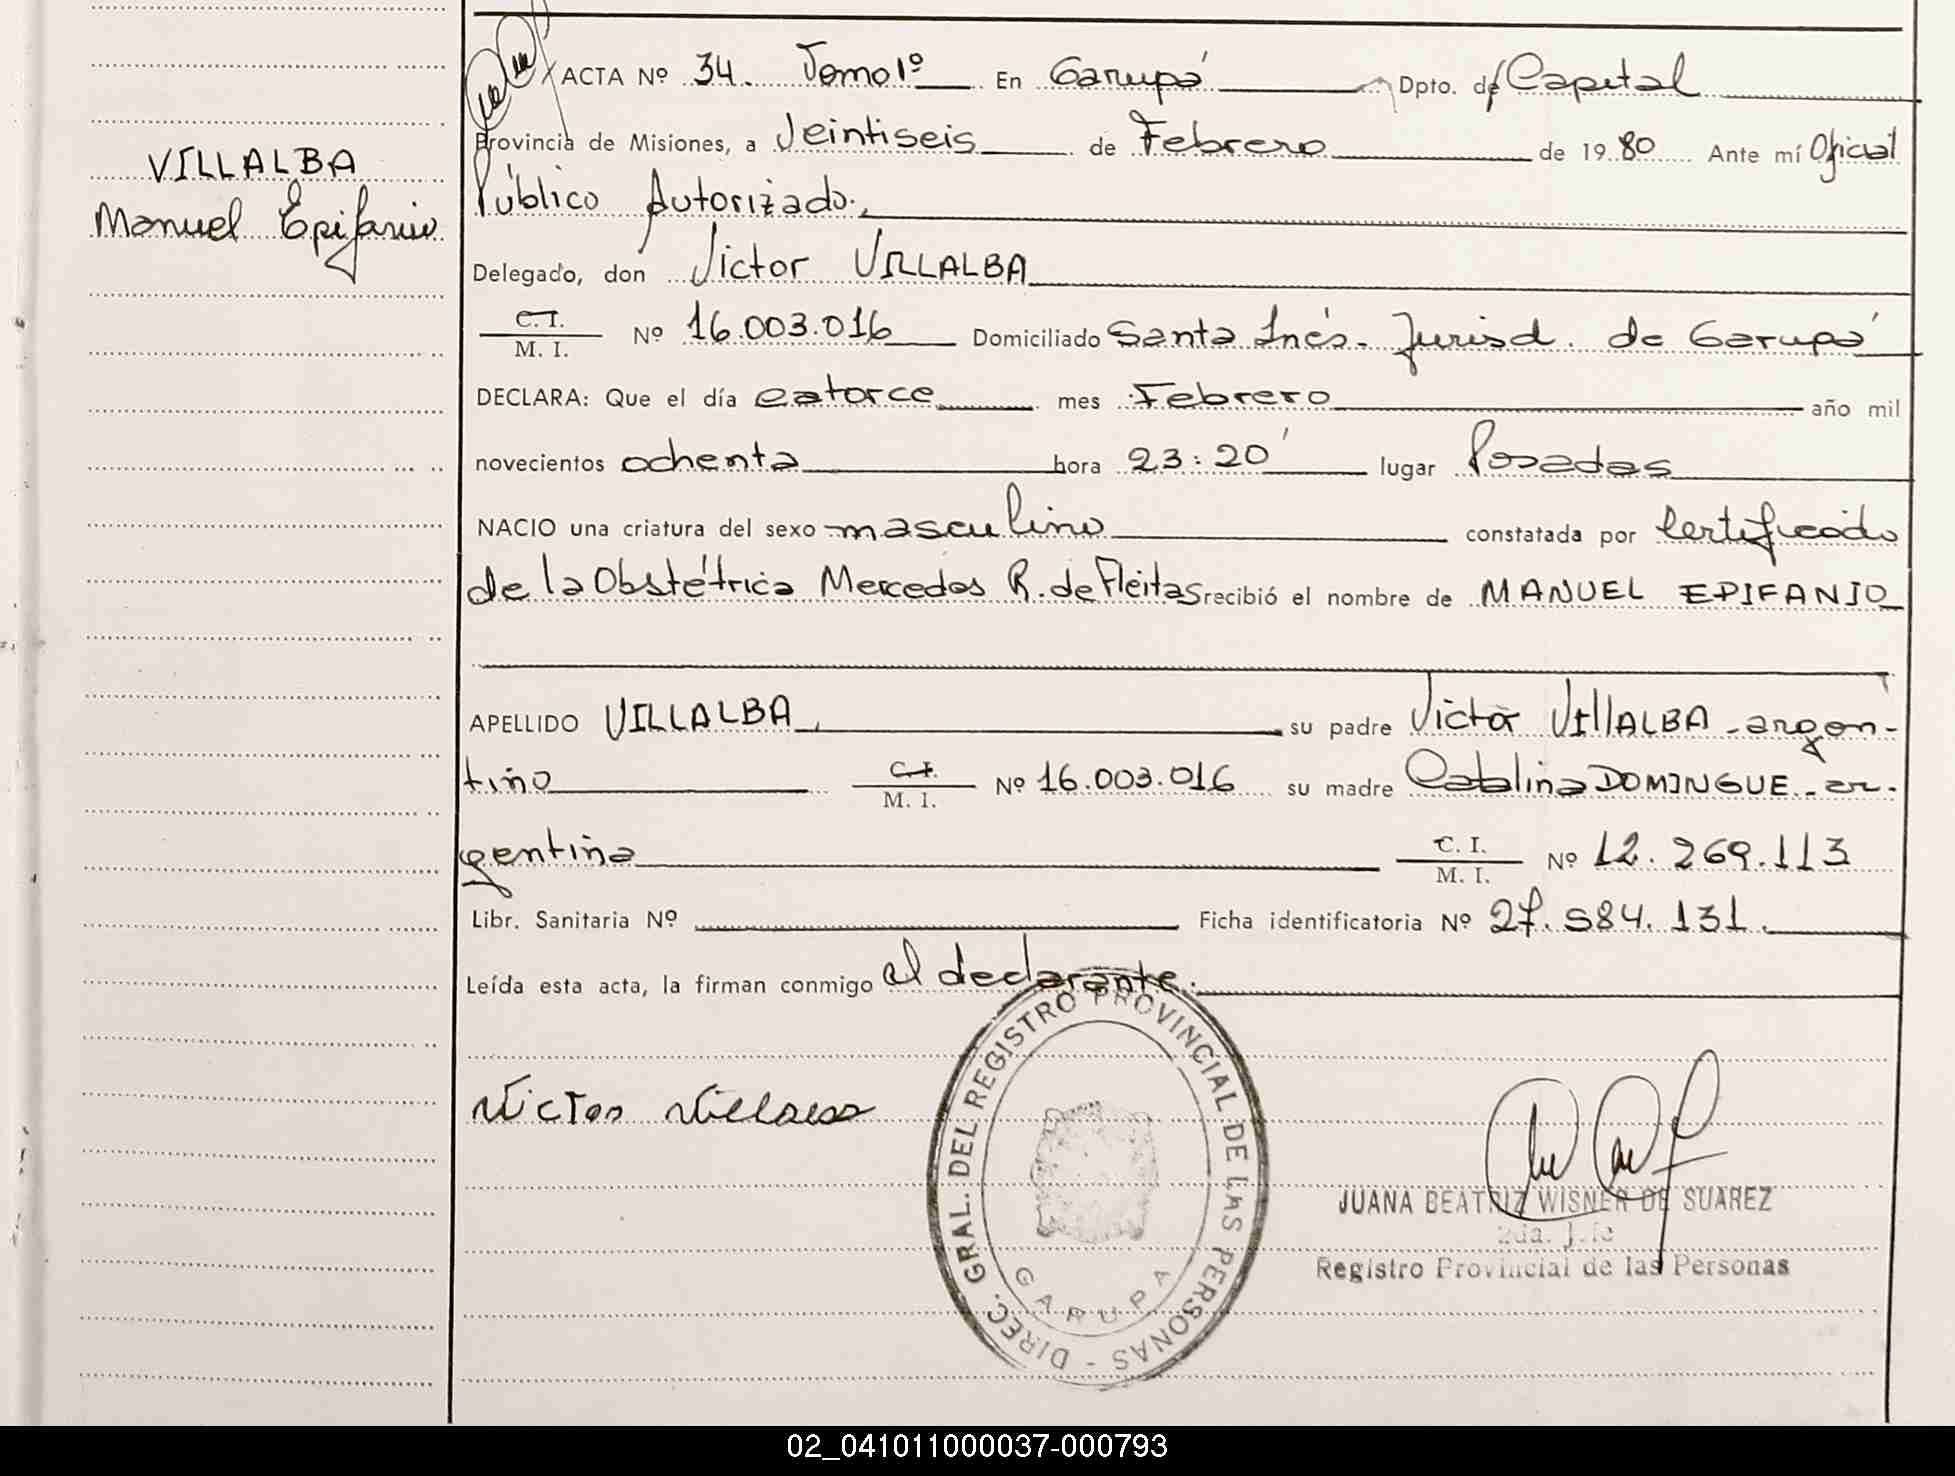 VILLALBA
Manuel Epifanio
ACTA Nº 34. Tomo 1º En Garupá Dpto. de Capital
Provincia de Misiones, a Veintiseis de Febrero de 1980 Ante mí Oficial
Público Autorizado.
Delegado, don Victor VILLALBA
C.I. / M. I. Nº 16.003.016 Domiciliado Santa Inés. Jurisd. de Garupá
DECLARA: Que el día catorce mes Febrero año mil
novecientos ochenta hora 23:20' lugar Posadas
NACIO una criatura del sexo masculino constatada por Certificado
de la Obstétrica Mercedes R. de Fleitas recibió el nombre de MANUEL EPIFANIO
APELLIDO VILLALBA su padre Victor VIllALBA - argen-
tino C.I. / M. I. Nº 16.003.016 su madre Catalina DOMINGUE - ar-
gentina C. I. / M. I. Nº 12.269.113
Libr. Sanitaria Nº Ficha identificatoria Nº 27.584.131.
Leída esta acta, la firman conmigo el declarante.
DIREC. GRAL. DEL REGISTRO PROVINCIAL DE LAS PERSONAS -
GARUPA
Victor Villalba
JUANA BEATRIZ WISNER DE SUAREZ
2da. Jefe
Registro Provincial de las Personas
02_041011000037-000793